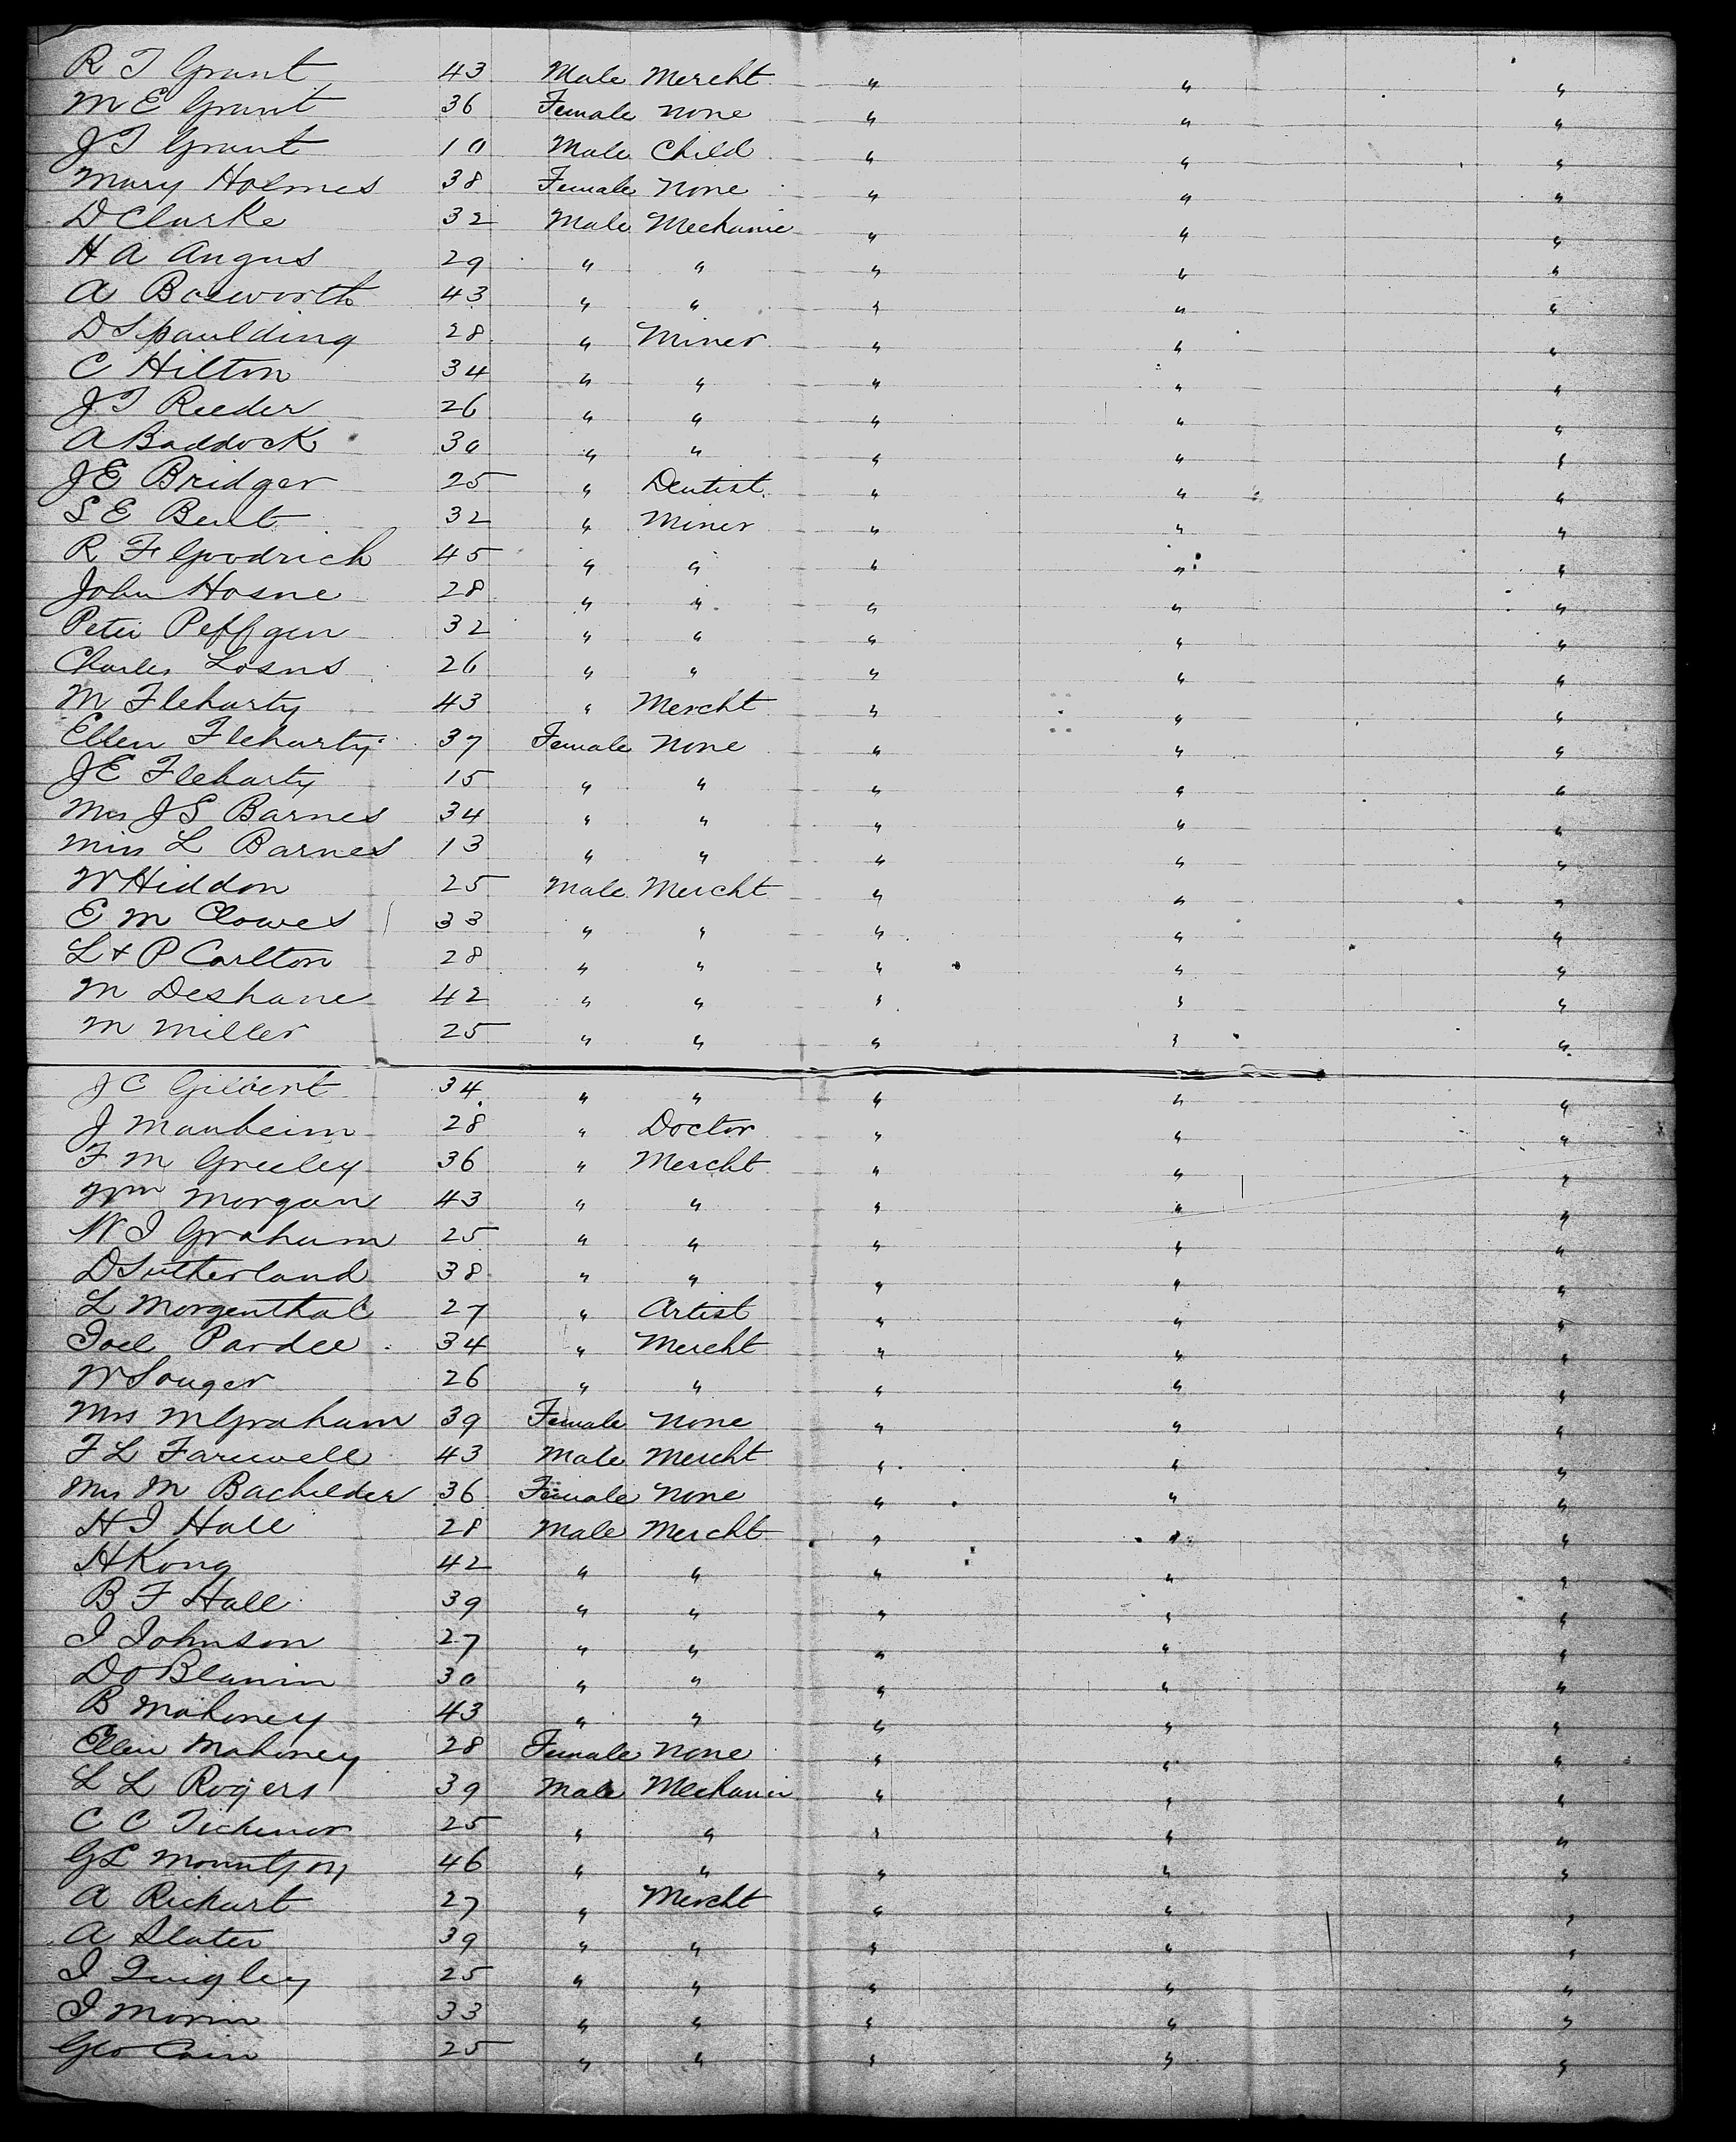 R T Grant 43 Male Mercht " " "
M E Grant 36 Female None " " "
J T Grant 10 Male Child " " "
Mary Holmes 38 Female None " " "
D Clarke 32 Male Mechanic " " "
H A Angus 29 " " " " "
A Bosworth 43 " " " " "
D Spaulding 28 " Miner " " "
C Hilton 34 " " " " "
J T Reeder 26 " " " " "
A Baddock 30 " " " " "
J E Bridger 25 " Dentist " " "
S E Bent 32 " Miner " " "
R F Goodrich 45 " " " " "
John Hosne 28 " " " " "
Peter Peffgen 32 " " " " "
Charles Losns 26 " " " " "
M Fleharty 43 " Mercht " " "
Ellen Fleharty 37 Female None " " "
J E Fleharty 15 " " " " "
Mrs J S Barnes 34 " " " " "
Miss L Barnes 13 " " " " "
W Hiddon 25 Male Mercht " " "
E M Clowes 33 " " " " "
L & P Carlton 28 " " " " "
M Deshane 42 " " " " "
M Miller 25 " " " " "
J C Gilbert 34 " " " " "
J Manheim 28 " Doctor " " "
F M Greeley 36 " Mercht " " "
Wm Morgan 43 " " " " "
W I Graham 25 " " " " "
D Sutherland 38 " " " " "
L Morgenthal 27 " Artist " " "
Joel Pardee 34 " Mercht " " "
W Souger 26 " " " " "
Mrs M Graham 39 Female None " " "
F L Farewell 43 Male Mercht " " "
Mrs M Bachelder 36 Female None " " "
H I Hall 28 Male Mercht " " "
H Kong 42 " " " " "
B F Hall 39 " " " " "
I Johnson 27 " " " " "
D O 30 " " " " "
B Mahoney 43 " " " " "
Ellen Mahoney 28 Female None " " "
L L Rogers 39 Male Mechanic " " "
C C Tichenor 25 " " " " "
G L Mountjoy 46 " " " " "
A Rickart 27 " Mercht " " "
A Slater 39 " " " " "
I Quigley 25 " " " " "
I Morin 33 " " " " "
Geo Cain 25 " " " " "